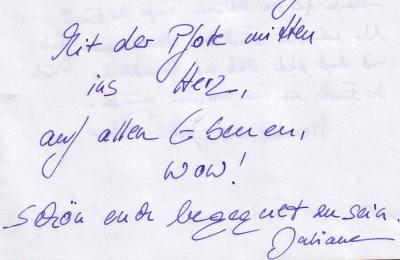 Mit der Pfote mitten
ins Herz,
auf allen Ebenen,
wow!
Schön euch begegnet zu sein.
Juliane